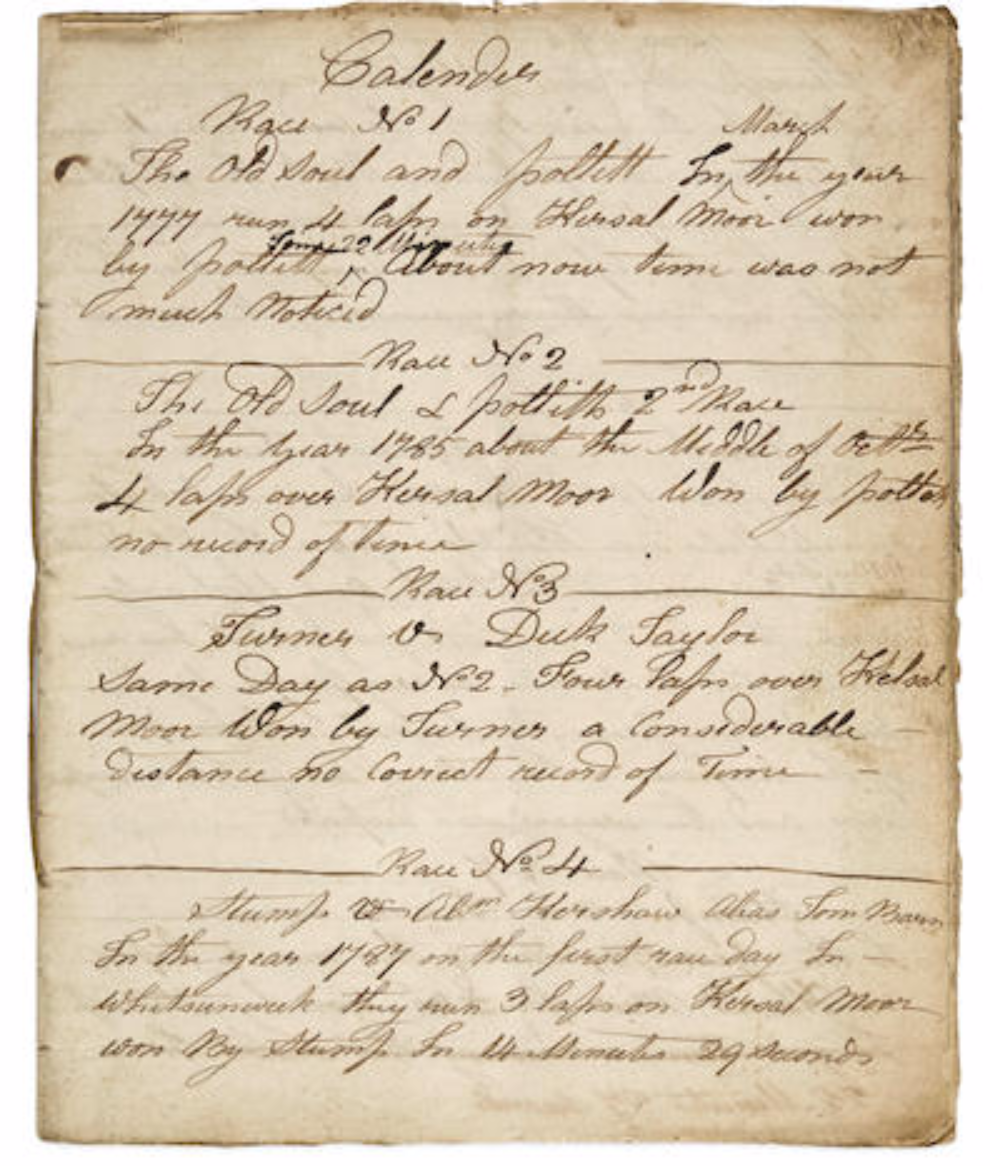 Calender
Race No 1
March
The Old Soul and pottitt In the year
1777 run 4 laps on Kersal Moor won
Time 22 Minutes
by pottitt, About now time was not
much Noticed
Race No 2
The Old Soul & pottith 2nd Race
In the year 1785 about the Middle of Octr
4 laps over Kersal Moor Won by
no record of time
Race No 3
Turner v Dick Taylor
Same Day as No 2. Four laps over Kelsal
Moor Won by Turner a Considerable
distance no Correct record of Time
Race No 4
Stump V Abm Kershaw Alias Tom Barn
In the year 1787 on the first race day In
Whitsunweek they run 3 laps on Kersal Moor
won By Stump In 14 Minuts 29 seconds